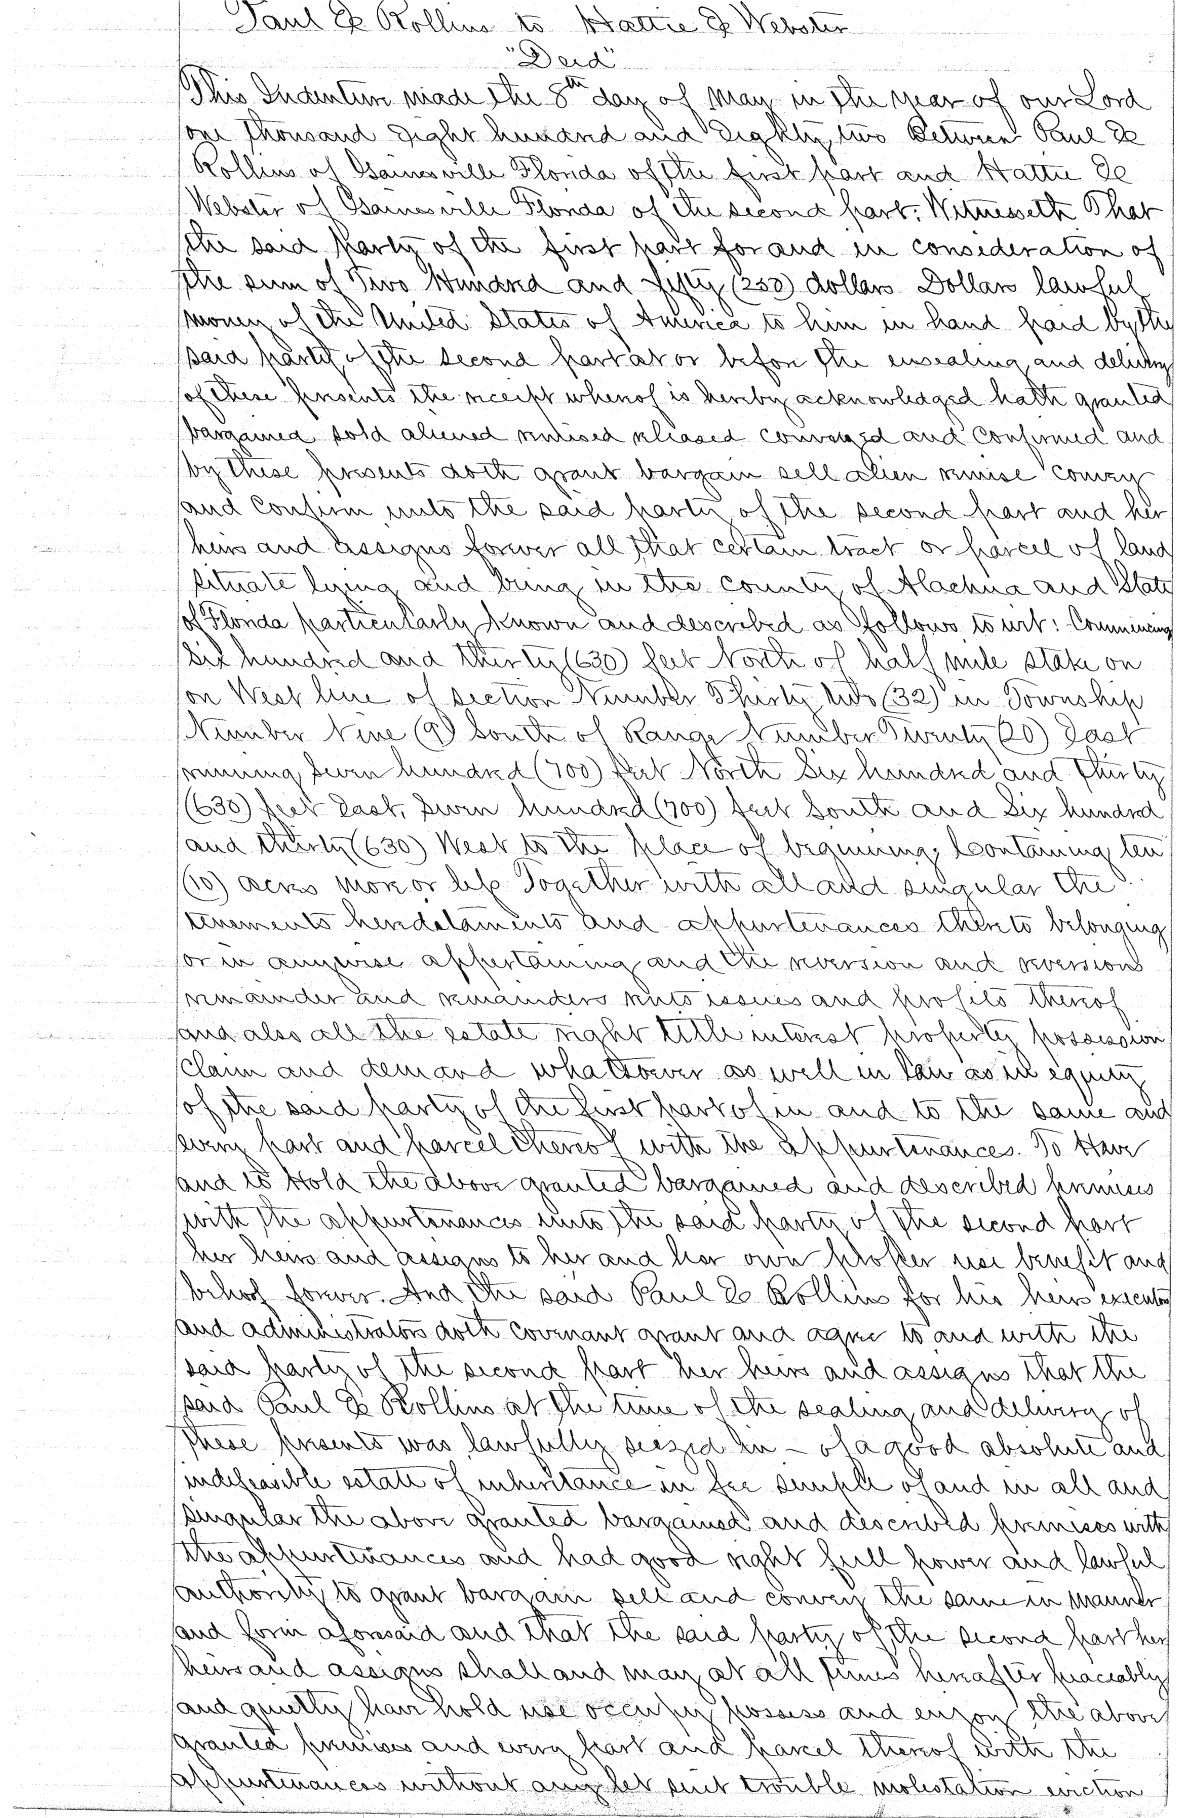 Paul E Rollins to Hattie E Webster
"Deed"
This Indenture made the 8th day of May in the year of our Lord
one thousand Eight hundred and Eighty two Between Paul E
Rollins of Gainesville Florida of the first part and Hattie E
Webster of Gainesville Florida of the second part. Witnesseth That
the said party of the first part for and in consideration of
the sum of Two Hundred and fifty (250) dollars Dollars lawful
money of the United States of America to him in hand paid by the
said party of the second part at or before the ensealing and delivery
of these presents the receipt whereof is hereby acknowledged hath granted
bargained sold aliened remised released conveyed and confirmed and
by these presents doth grant bargain sell alien remise convey
and confirm unto the said party of the second part and her
heirs and assigns forever all that certain tract or parcel of land
situate lying and being in the county of Alachua and State
of Florida particularly known and described as follows to wit: Commencing
Six hundred and thirty (630) feet North of half mile stake on
on West line of section Number Thirty two (32) in Township
Number Nine (9) South of Range Number Twenty (20) East
running Seven hundred (700) feet North Six hundred and thirty
(630) feet East, Seven hundred (700) feet South and Six hundred
and thirty (630) West to the place of beginning; Containing ten
(10) acres more or less Together with all and singular the
tenements heredataments and appurtenances thereto belonging
or in anywise appertaining and the reversion and reversions
remainder and remainders rents issues and profits thereof
and also all the estate right title interest property possession
claim and demand whatsoever as well in law as in equity
of the said party of the first part of in and to the same and
every part and parcel thereof with the appurtenances. To Have
and to Hold the above granted bargained and described premises
with the appurtenances unto the said party of the second part
her heirs and assigns to her and her own proper use benefit and
behoof forever. And the said Paul E Rollins for his heirs executors
and administrators doth covenant grant and agree to and with the
said party of the second part her heirs and assigns that the
said Paul E Rollins at the time of the sealing and delivery of
these presents was lawfully seezed in - of a good absolute and
indefeasible estate of inheritance in fee simple of and in all and
singular the above granted bargained and described premises with
the appurtenances and had good right full power and lawful
authority to grant bargain sell and convey the same in manner
and form aforesaid and that the said party of the second part her
heirs and assigns shall and may at all times hereafter peaceably
and quietly have hold use occupy possess and enjoy the above
granted premises and every part and parcel thereof with the
appurtenances without any let suit trouble molestation eviction